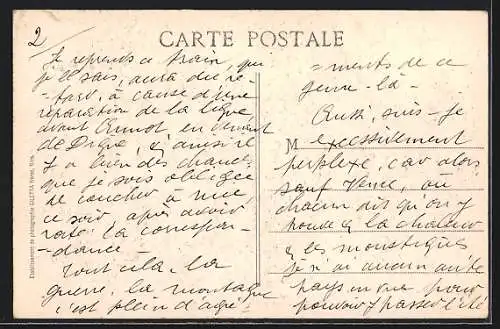 2
CARTE POSTALE
Je reprends ce train, qui
je le sais, aura du re-
-tard, à cause d'une
réparation de la ligne
avant Annot en venant
de Digne, et ainsi il
y a bien des chances
que je sois obligée
de coucher à Nice
ce soir, après avoir
raté la correspon-
-dance -
Tout cela, la
guerre, la montagne
c'est plein d'agré-
=ments de ce
genre-là -
Aussi, suis-je
M excessivement
perplexe, car alors
sauf Vence, où
chacun dit qu'on y
trouve la chaleur
& les moustiques
je n'ai aucun autre
pays en vue pour
pouvoir y passer l'été
Etablissement de photographie GILETTA frères, Nice.